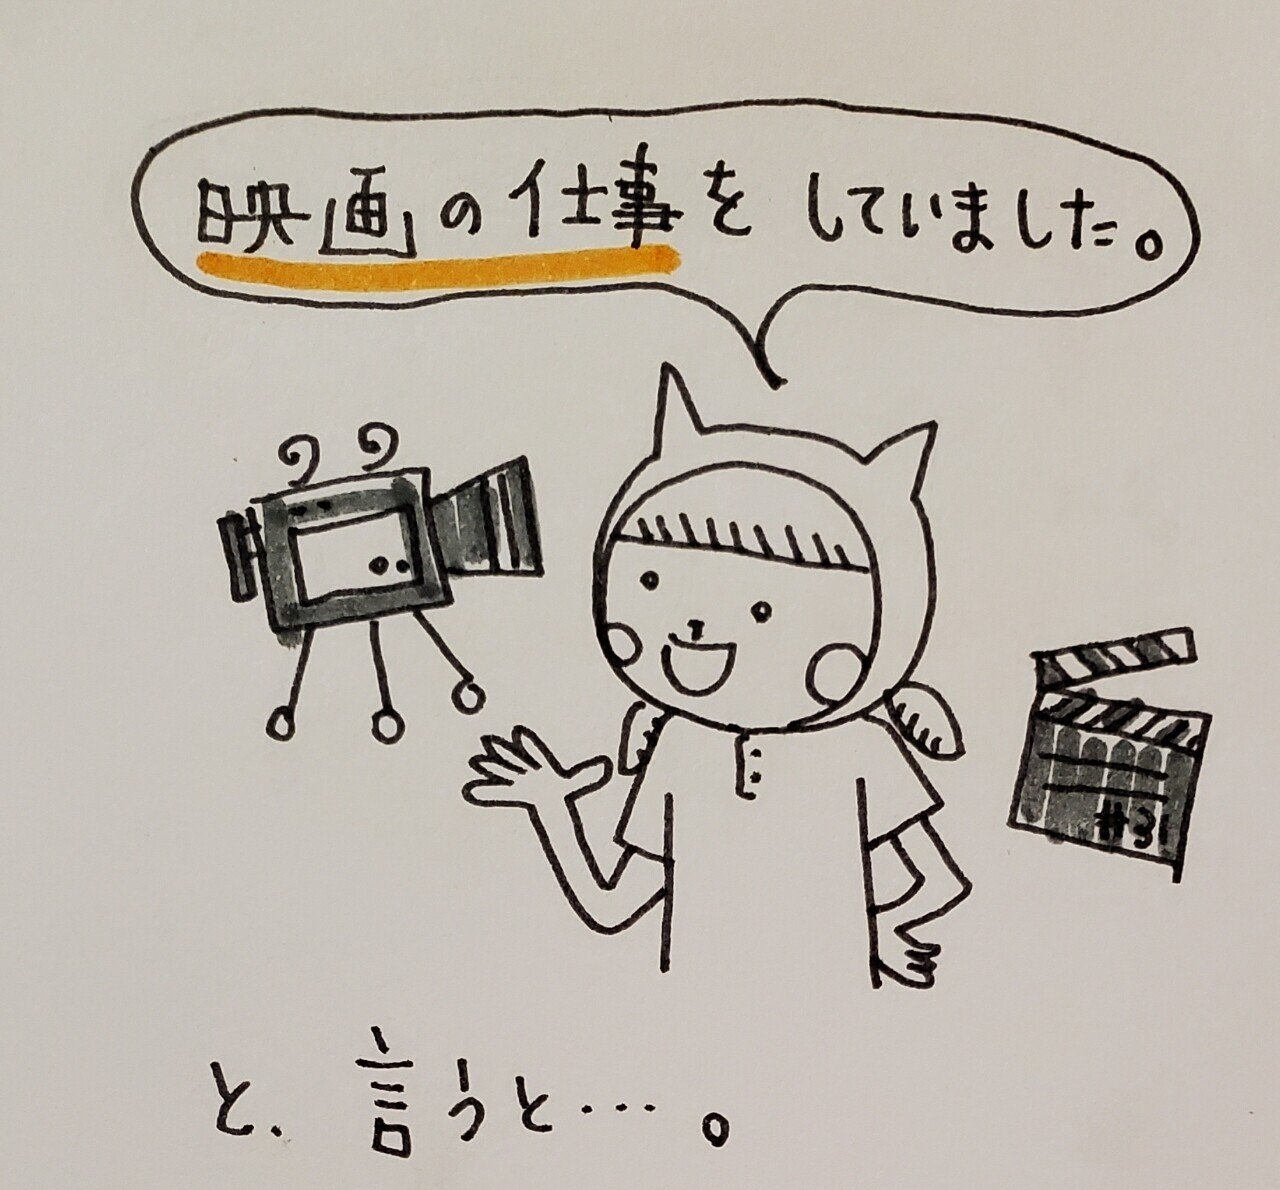 映画の仕事をしていました。
#31
と、言うと…。